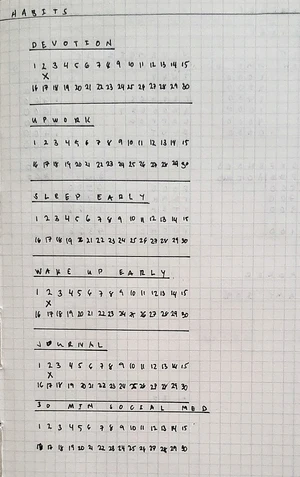 HABITS
DEVOTION
1 2 3 4 5 6 7 8 9 10 11 12 13 14 15
X
16 17 18 19 20 21 22 23 24 25 26 27 28 29 30
UPWORK
1 2 3 4 5 6 7 8 9 10 11 12 13 14 15
16 17 18 19 20 21 22 23 24 25 26 27 28 29 30
SLEEP EARLY
1 2 3 4 5 6 7 8 9 10 11 12 13 14 15
16 17 18 19 20 21 22 23 24 25 26 27 28 29 30
WAKE UP EARLY
1 2 3 4 5 6 7 8 9 10 11 12 13 14 15
X
16 17 18 19 20 21 22 23 24 25 26 27 28 29 30
JOURNAL
1 2 3 4 5 6 7 8 9 10 11 12 13 14 15
X
16 17 18 19 20 21 22 23 24 25 26 27 28 29 30
30 MIN SOCIAL MED
1 2 3 4 5 6 7 8 9 10 11 12 13 14 15
16 17 18 19 20 21 22 23 24 25 26 27 28 29 30